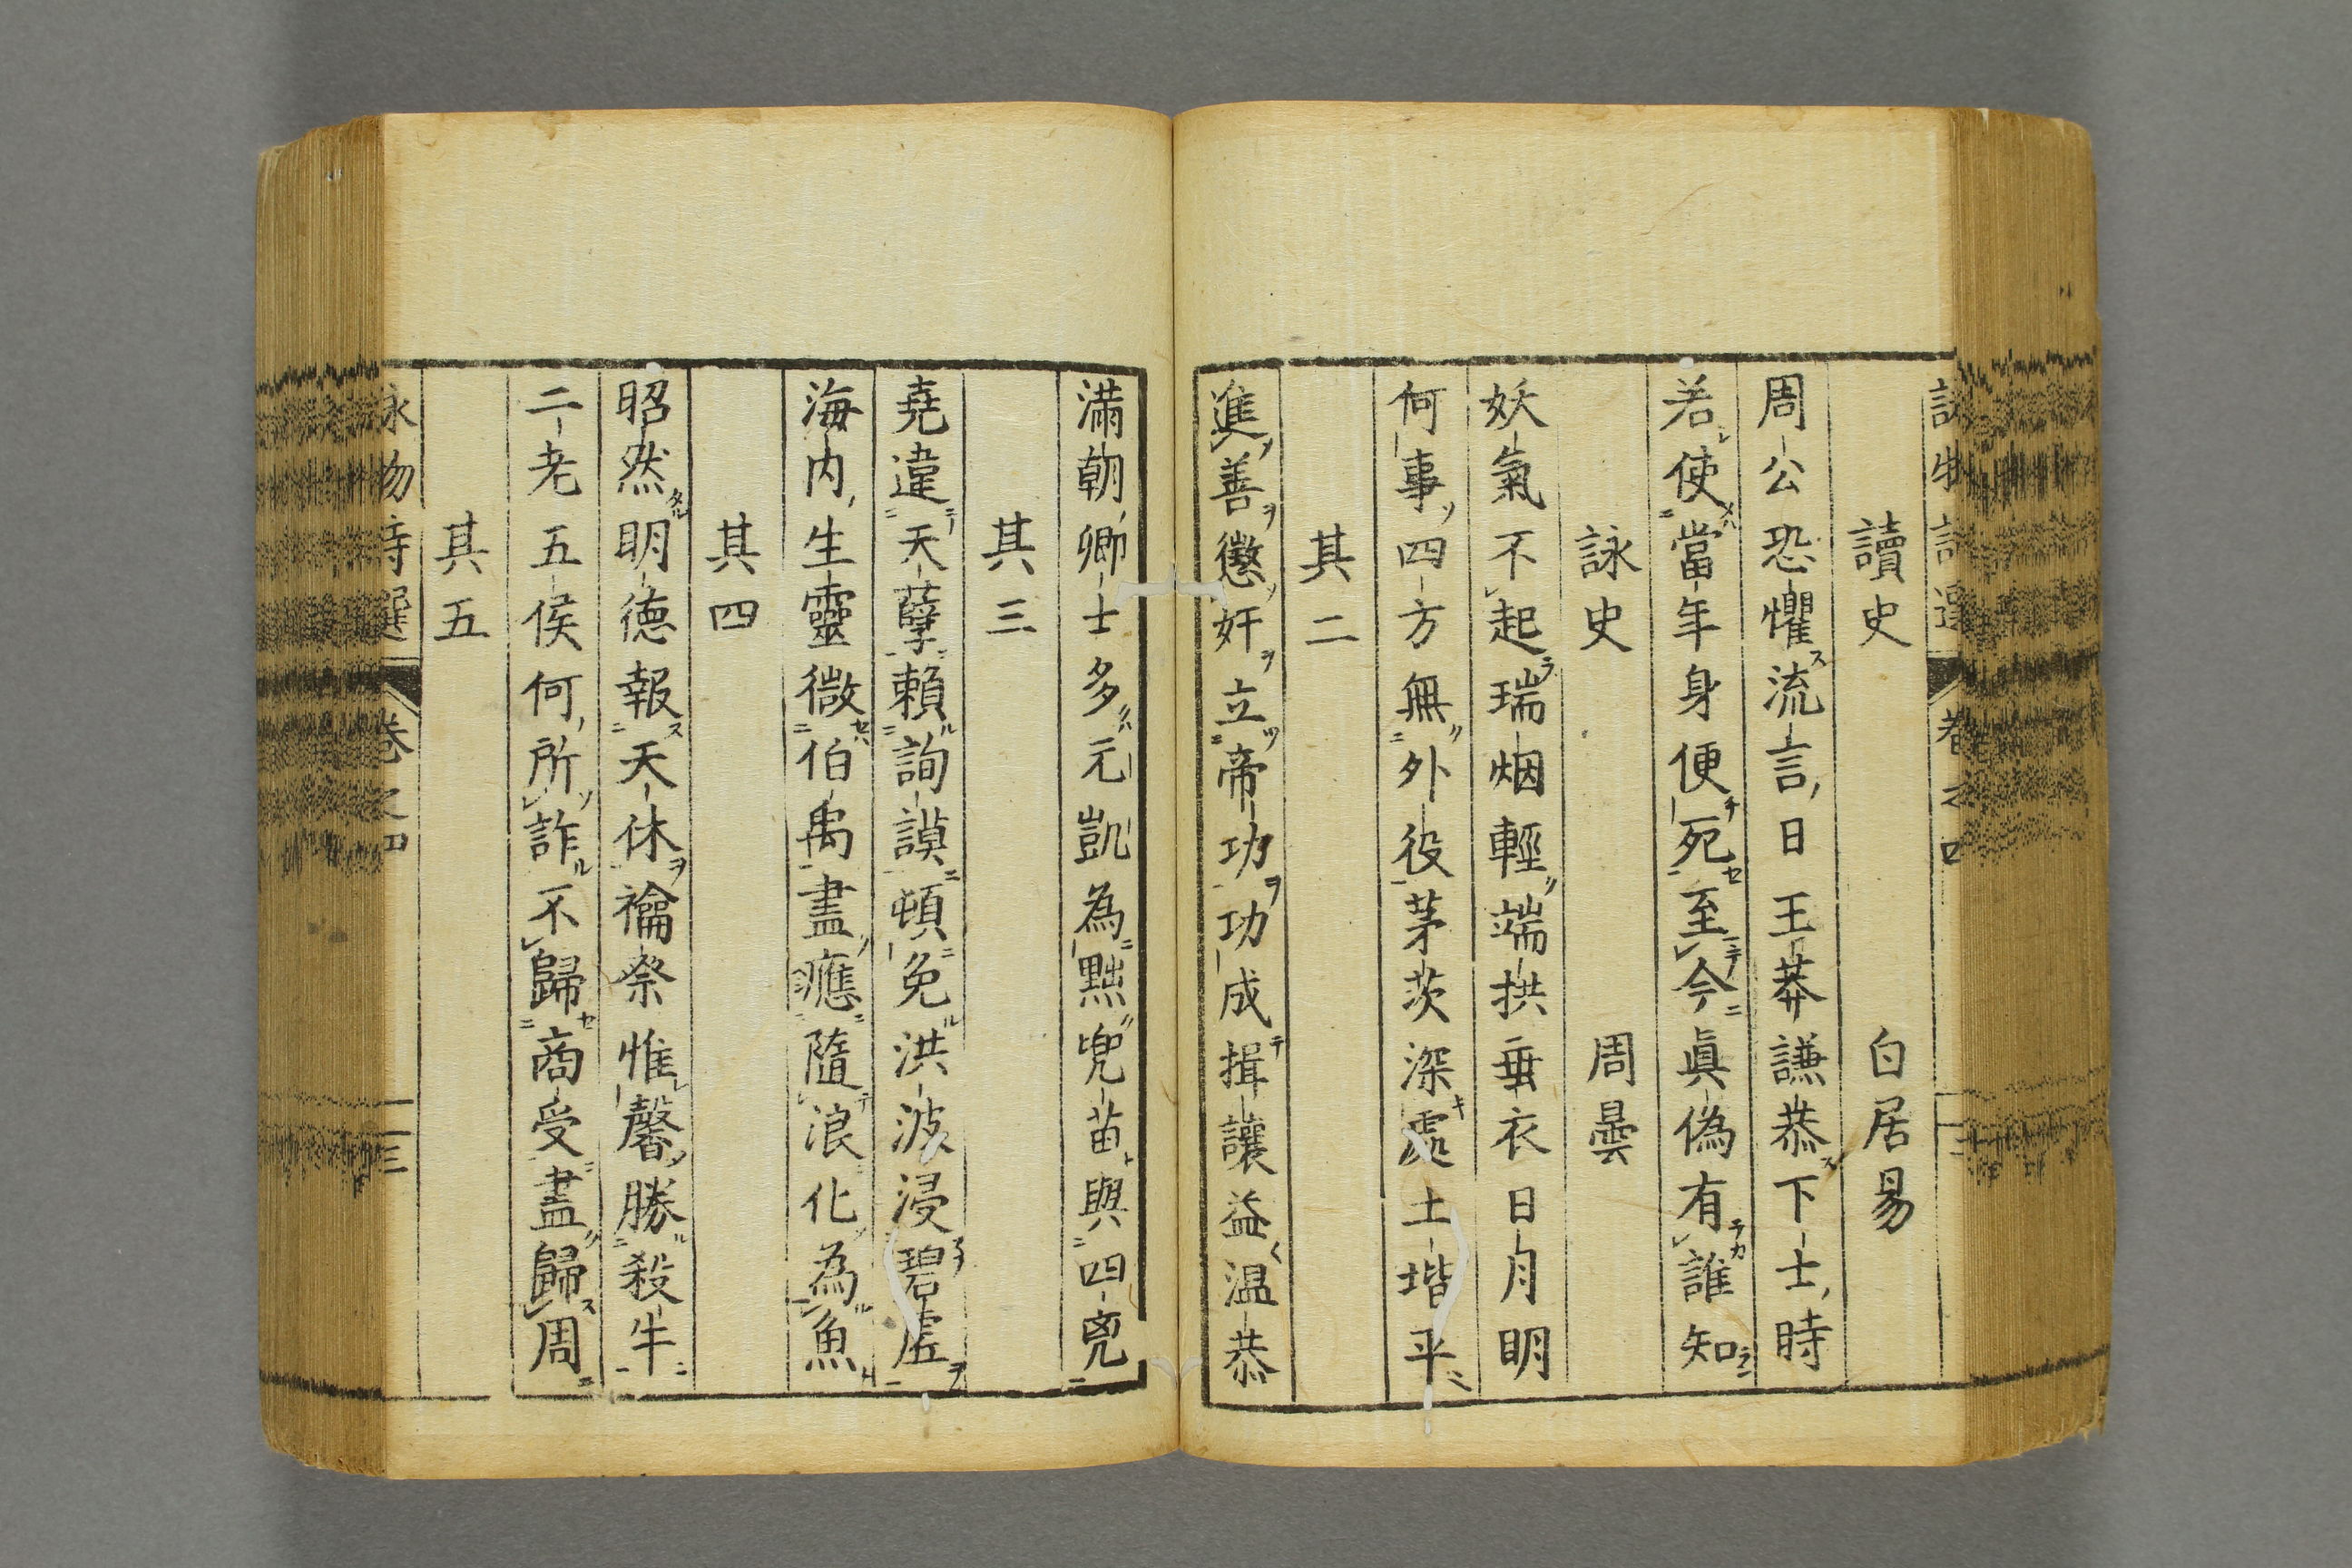 讀史 白居易
周公恐懼流言日王莽謙恭下士時
若使當年身便死至今眞偽有誰知
詠史 周曇
妖氣不起瑞烟輕端拱垂衣日月明
何事四方無外役茅茨深處土堦平
其二
進善懲奸立帝功功成揖讓益温恭
滿朝卿士多元凱為黜兜苗與四兇
其三
堯違天孽賴詢謨頓免洪波浸碧虚
海内生靈微伯禹盡應隨浪化為魚
其四
昭然明徳報天休禴祭惟馨勝殺牛
二老五侯何所詐不歸商受盡歸周
其五
詠物詩選 卷之四 三